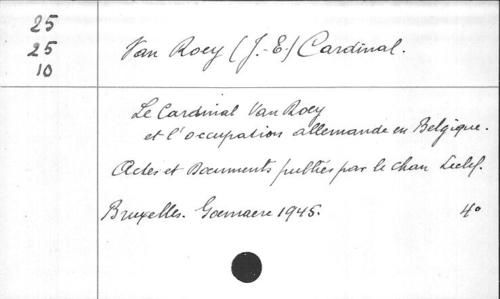 25
25
10
Van Roey (J.-E.) Cardinal.
Le Cardinal Van Roey
et l'occupation allemande en Belgique.
Actes et Documents publiés par le chan Leclef.
Bruxelles. Goemaere 1945. 4°